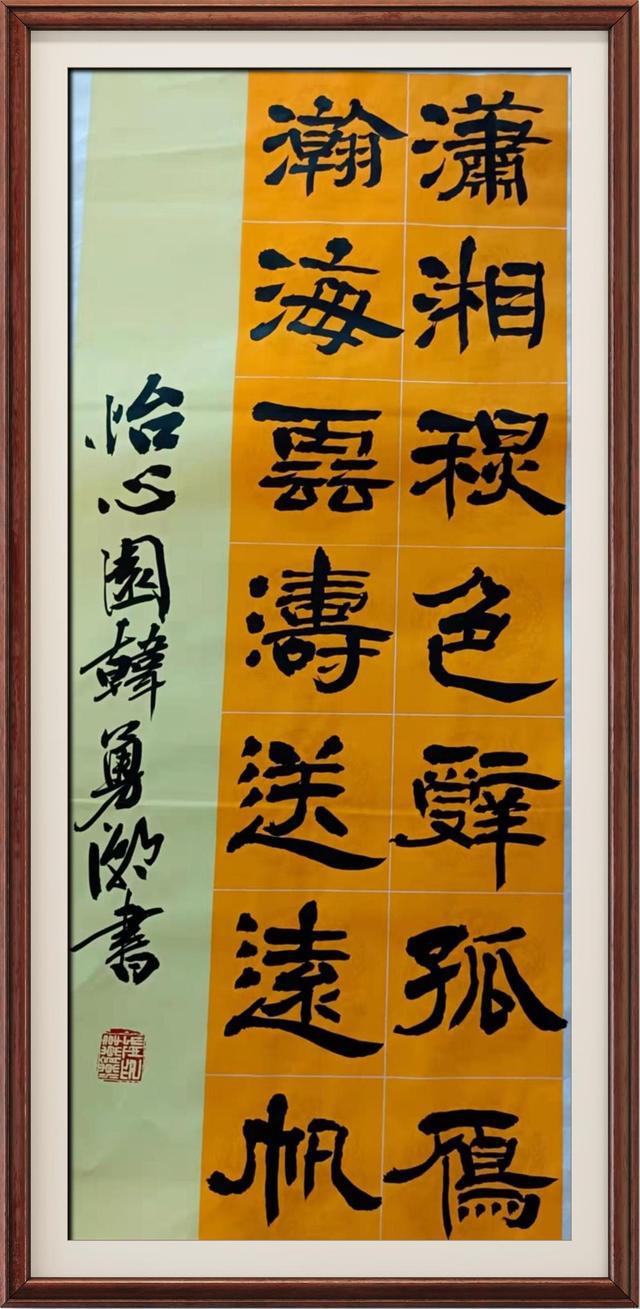 瀟湘秋色辭孤鴈
瀚海雲濤送遠帆
怡心園韓勇書